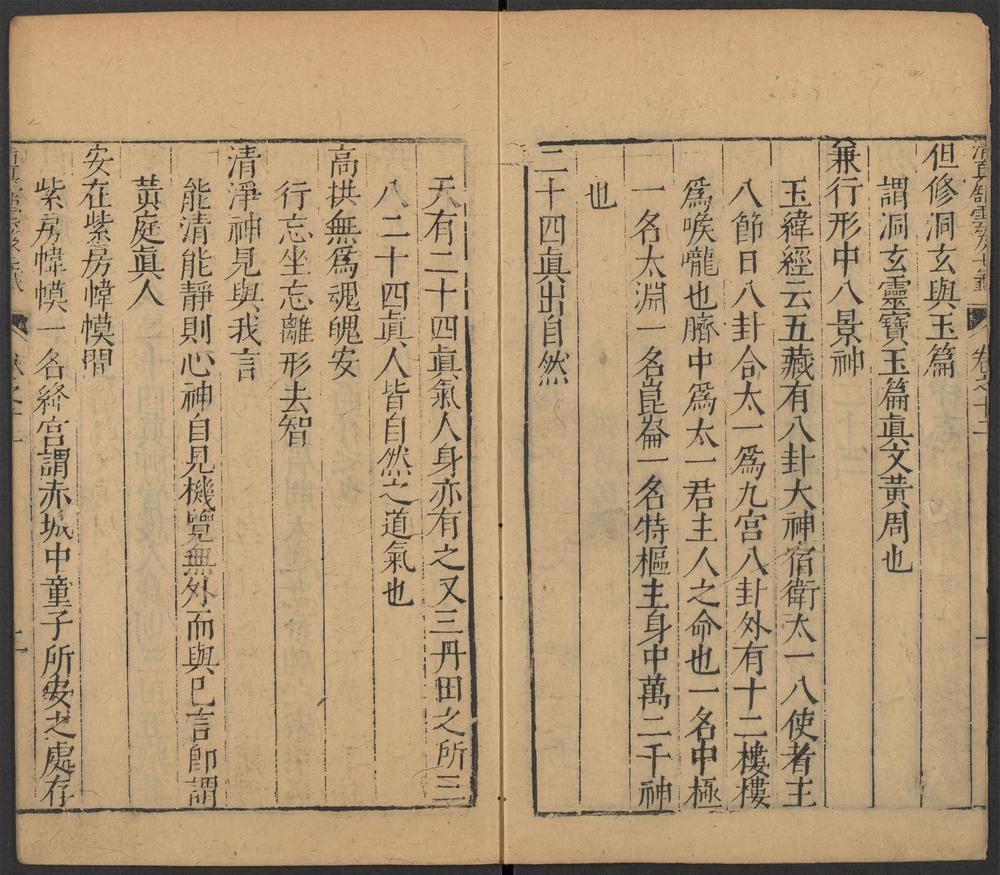 但修洞玄與玉篇
謂洞玄靈寶玉篇眞文黃周也
兼行形中八景神
玉緯經云五藏有八卦大神宿衛太一八使者主
八節日八卦合太一爲九宮八卦外有十二樓樓
爲喉嚨也臍中爲太一君主人之命也一名中極
一名太淵一名崑崙一名特樞主身中萬二千神
也
二十四眞出自然
天有二十四眞氣人身亦有之又三丹田之所三
八二十四眞人皆自然之道氣也
高拱無爲魂魄安
行忘坐忘離形去智
清淨神見與我言
能清能靜則心神自見機覽無外而與己言卽謂
黃庭眞人
安在紫房幃幙間
紫房幃幙一名絳宮謂赤城中童子所安之處存